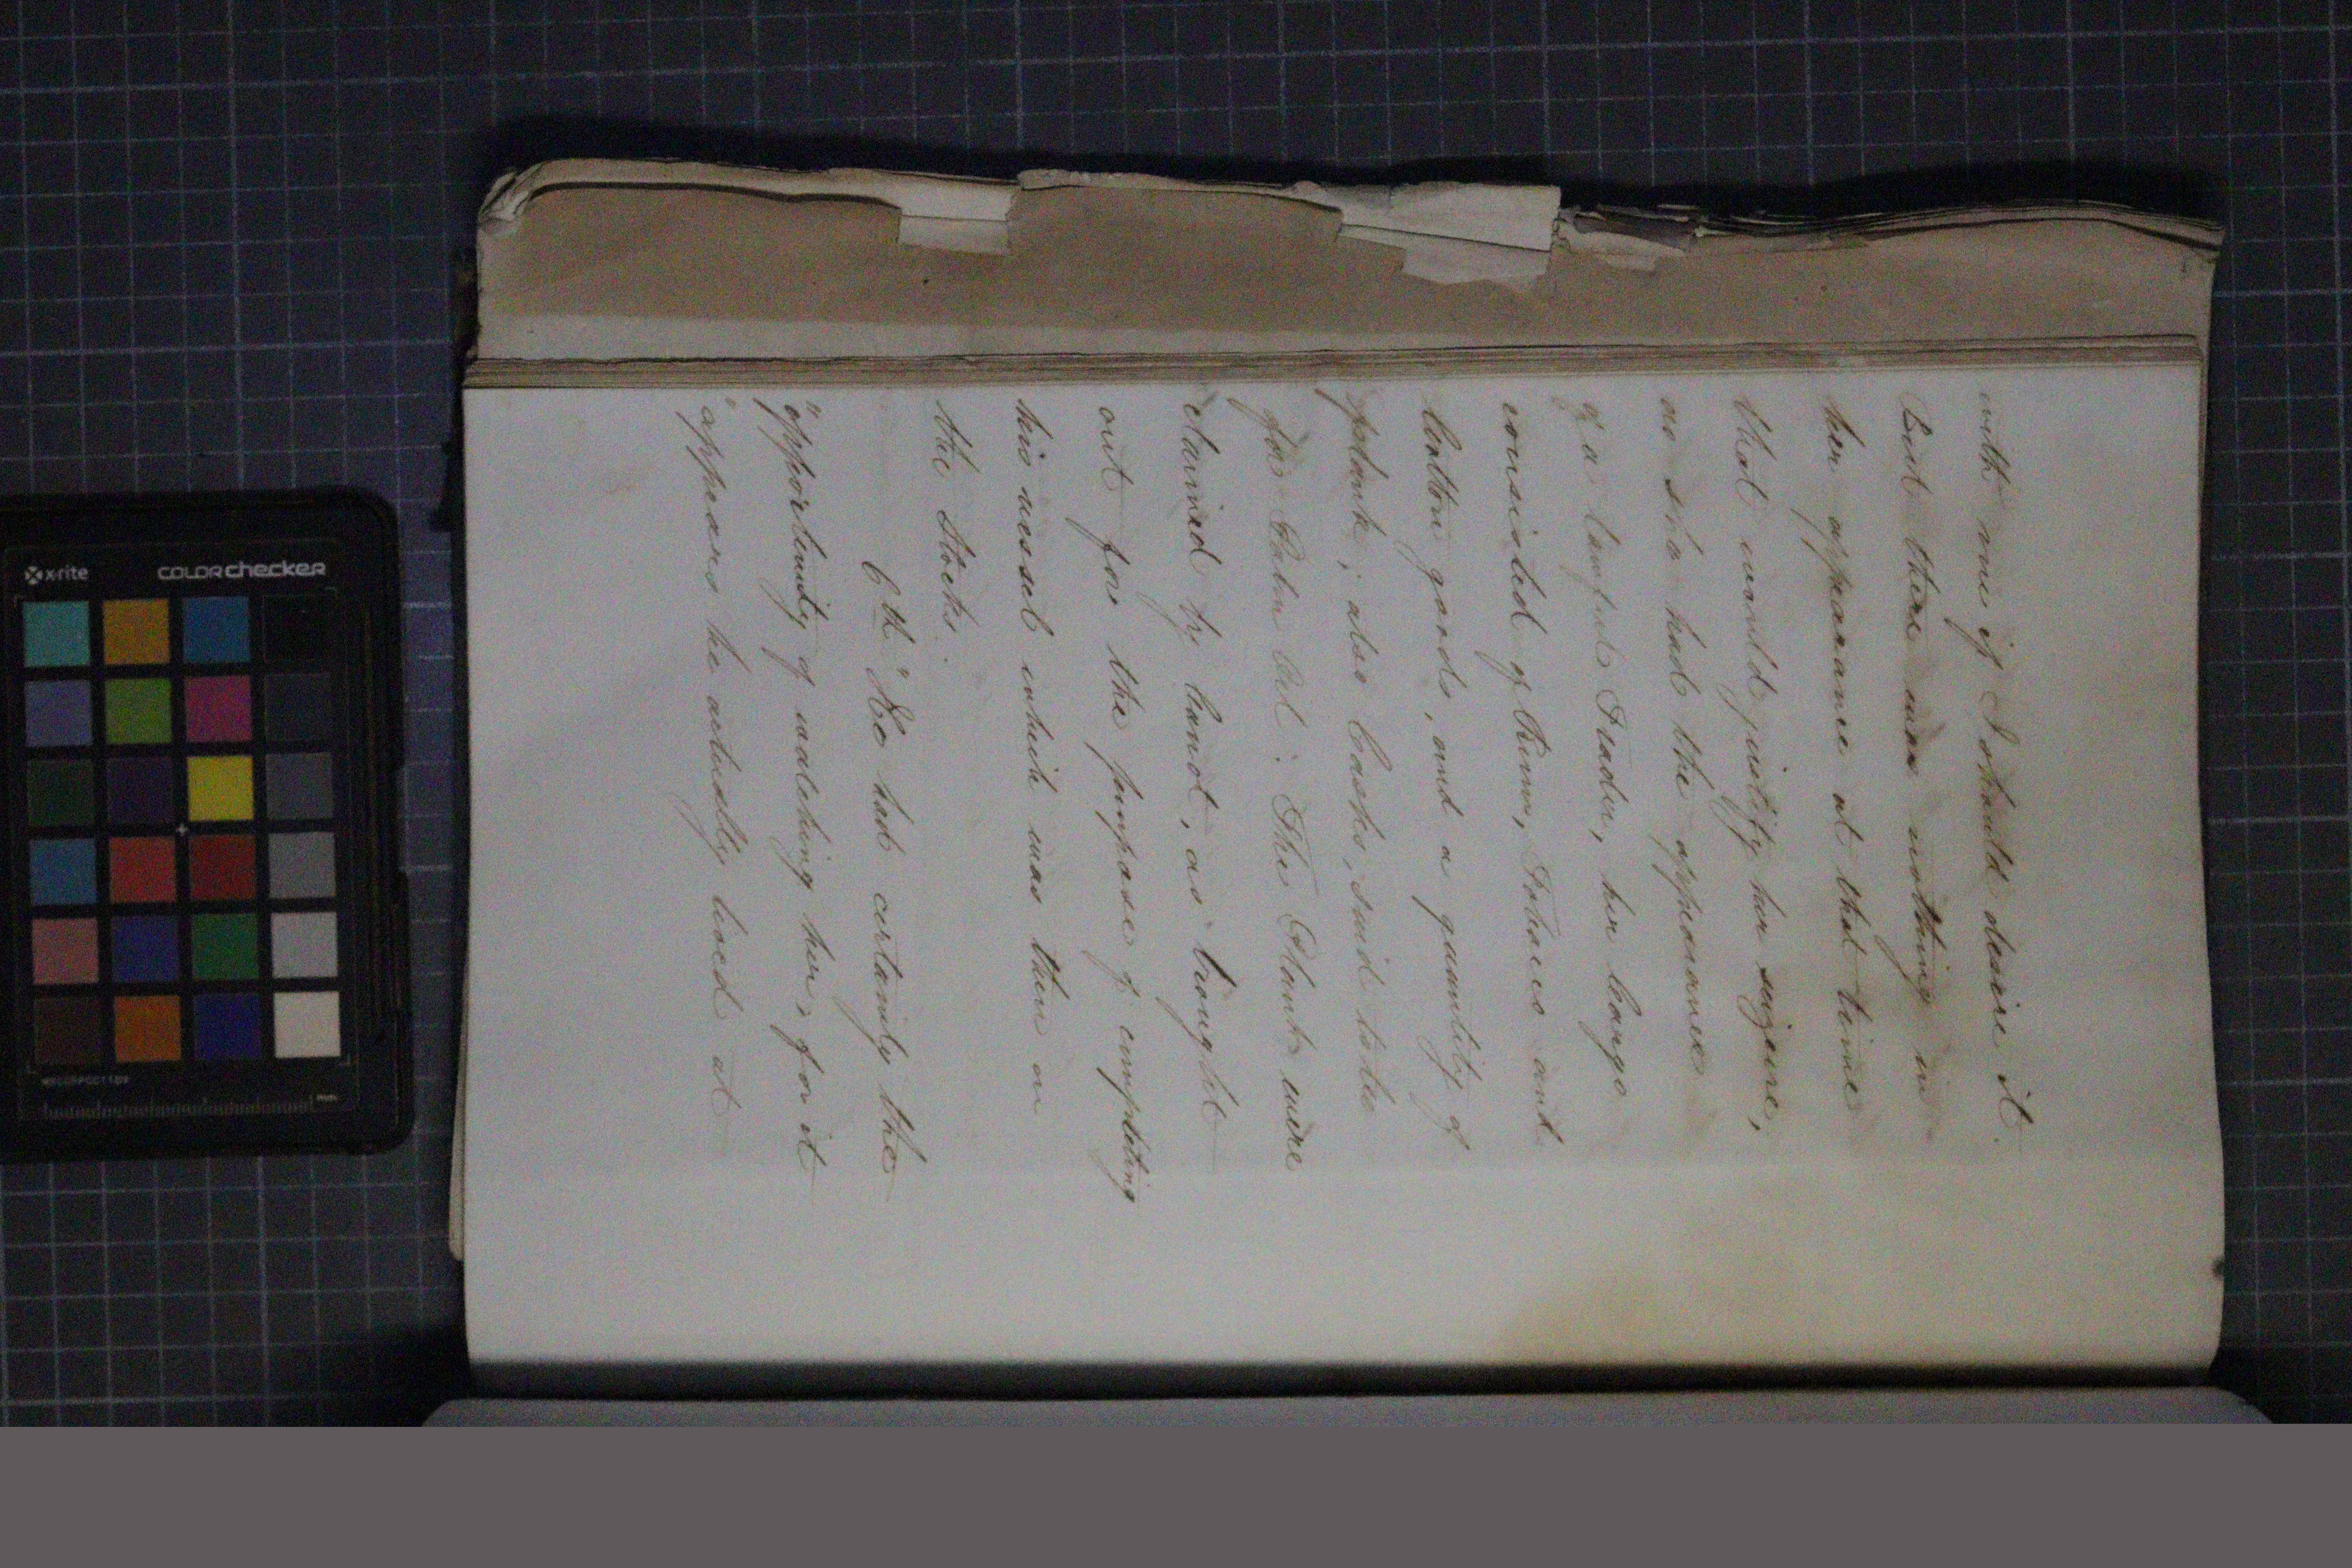 with me if I should desire it.
But there was nothing in
her appearance at that time
that could justify her seizure,
as she had the appearance
of a lawful Trader, her Cargo
consisted of Rum, Tobacco and
Cotton goods, and a quantity of
plank; also Casks, said to be
for Palm Oil: The Plank were
claimed by Canot, as brought
out for the purpose of completing
his vessel which was then on
the Stocks.
6th "He had certainly the
"opportunity of watching her, for it
"appears he actually lived at
x-rite
COLORchecker